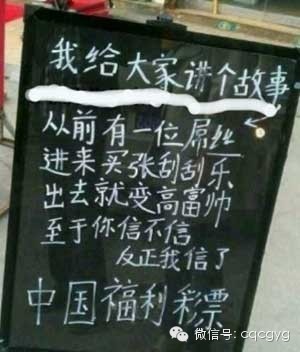 我给大家讲个故事
从前有一位屌丝
进来买张刮刮乐
出去就变高富帅
至于你信不信
反正我信了
中国福利彩票
微信号: cqcgyg